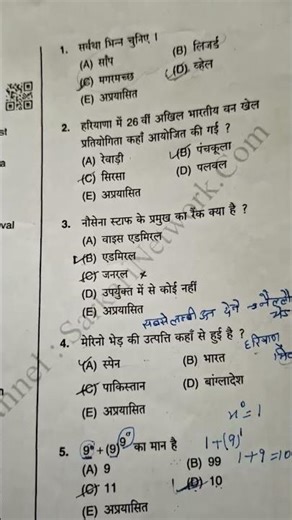 1. सर्वथा भिन्न चुनिए ।
(A) साँप (B) लिजर्ड
(C) मगरमच्छ (D) व्हेल
(E) अप्रयासित
2. हरियाणा में 26 वीं अखिल भारतीय वन खेल
प्रतियोगिता कहाँ आयोजित की गई ?
(A) रेवाड़ी (B) पंचकूला
(C) सिरसा (D) पलवल
(E) अप्रयासित
3. नौसेना स्टाफ के प्रमुख का रैंक क्या है ?
(A) वाइस एडमिरल
(B) एडमिरल
(C) जनरल
(D) उपर्युक्त में से कोई नहीं
(E) अप्रयासित
सबसे लम्बी ऊन देने
4. मेरिनो भेड़ की उत्पत्ति कहाँ से हुई है ?
(A) स्पेन (B) भारत
(C) पाकिस्तान (D) बांग्लादेश
(E) अप्रयासित
x⁰ = 1
5. 9⁰ + (9)^9⁰ का मान है
1+(9)¹
(A) 9 (B) 99
1+9=10
(C) 11 (D) 10
(E) अप्रयासित